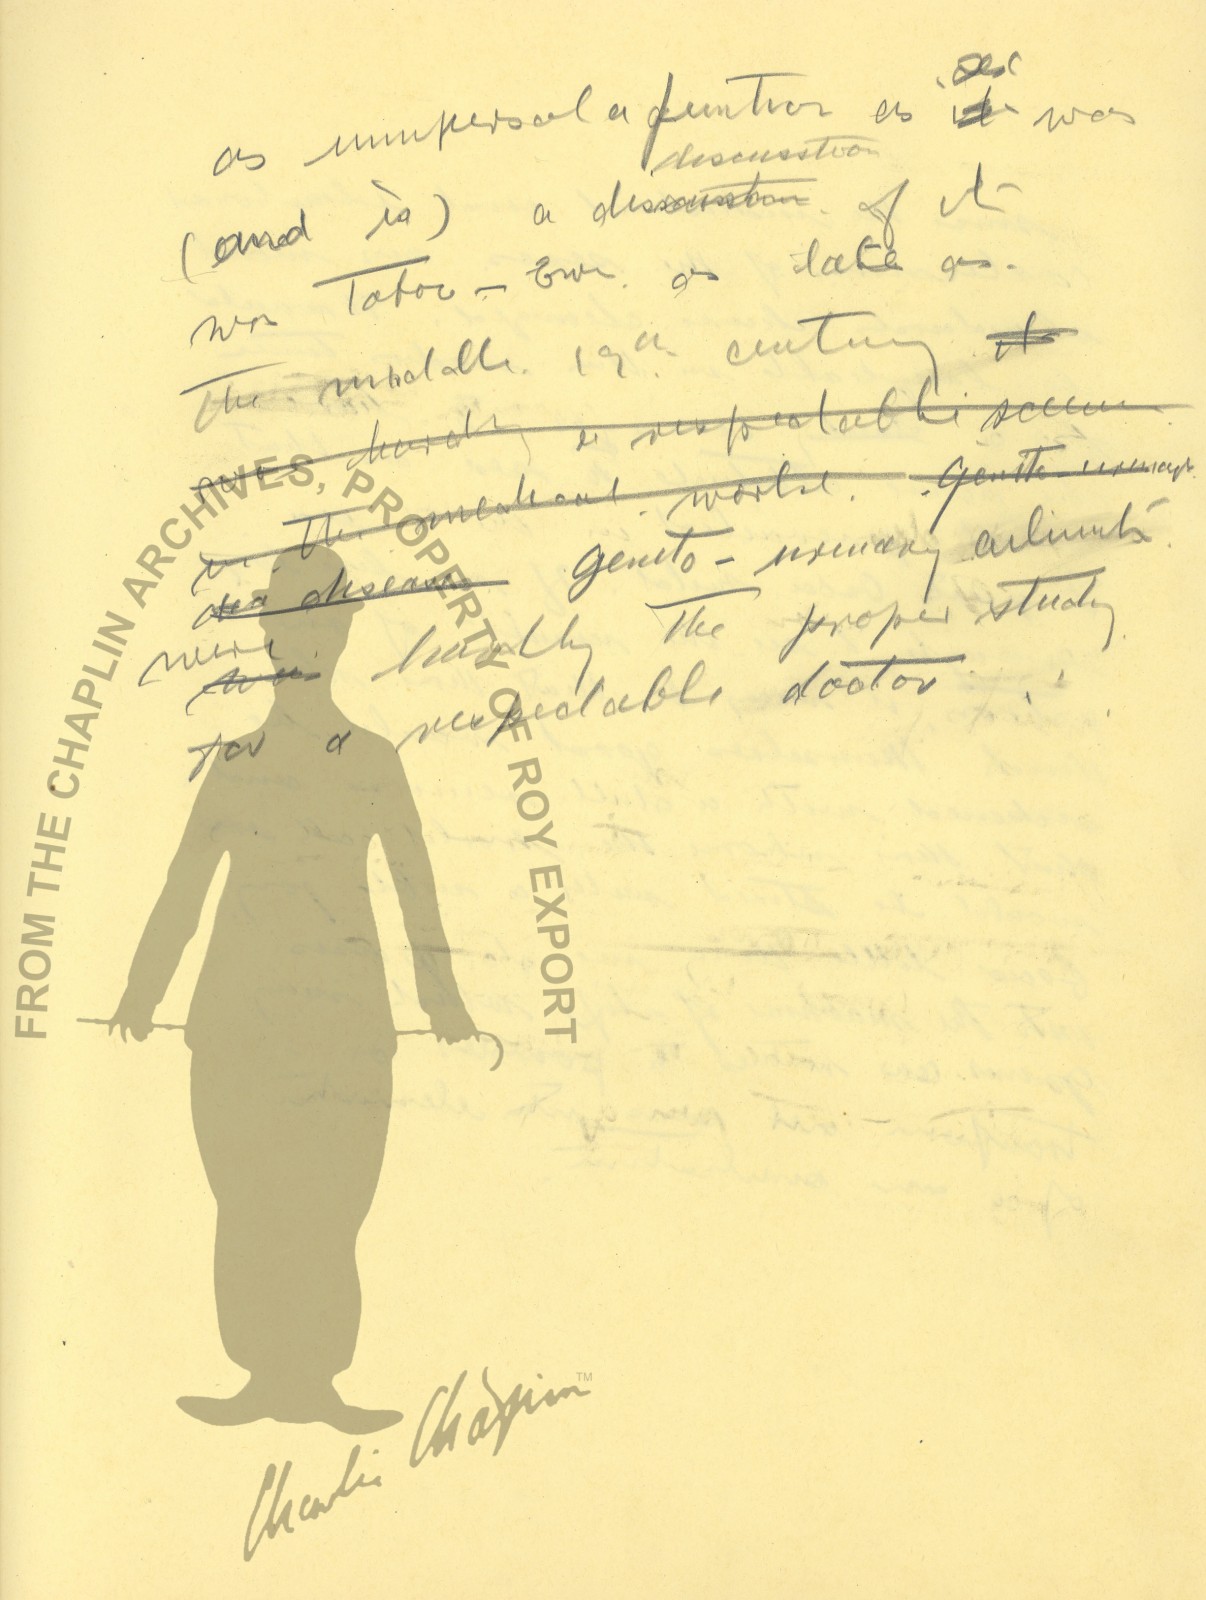 as universal a function as sex it was
discussion
(and is) a discussion of it
was Taboo - Even as late as
The middle 19th century it
was hardly a respectable
in the medical world. Genito-urinary
diseases Genito-urinary ailments
were
was hardly the proper study
for a respectable doctor.
FROM THE CHAPLIN ARCHIVES, PROPERTY OF ROY EXPORT
Charlie Chaplin TM